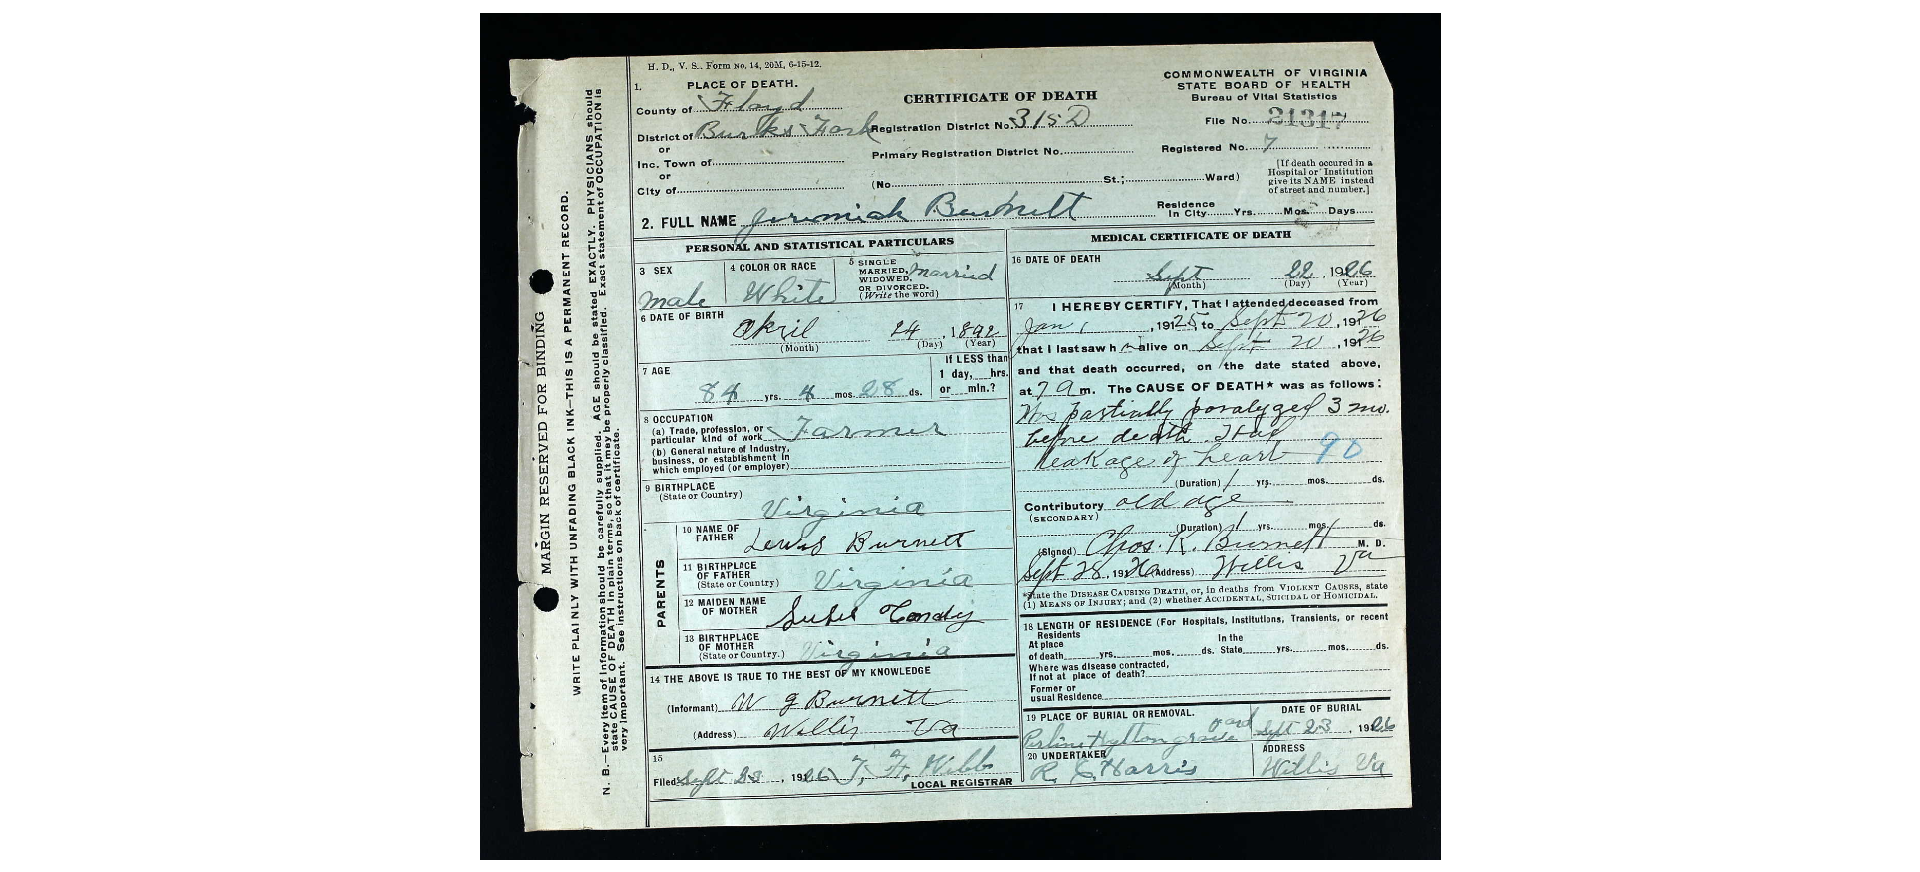 H. D., V. S.. Form No. 14, 20M, 6-15-12.
1. PLACE OF DEATH.
County of Floyd
District of Burks Fork
or
Inc. Town of
or
City of
CERTIFICATE OF DEATH
Registration District No. 315D
Primary Registration District No.
(No. St.; Ward)
COMMONWEALTH OF VIRGINIA
STATE BOARD OF HEALTH
Bureau of Vital Statistics
File No. 21317
Registered No. 7
[If death occured in a
Hospital or Institution
give its NAME instead
of street and number.]
2. FULL NAME Jeremiah Burnett
Residence
In City Yrs. Mos. Days
PERSONAL AND STATISTICAL PARTICULARS
3 SEX
male
4 COLOR OR RACE
White
5 SINGLE
MARRIED,
WIDOWED,
OR DIVORCED.
(Write the word)
married
6 DATE OF BIRTH
April 24, 1892
(Month) (Day) (Year)
7 AGE
84 yrs. 4 mos. 28 ds.
If LESS than
1 day, hrs.
or min.?
8 OCCUPATION
(a) Trade, profession, or
particular kind of work Farmer
(b) General nature of Industry,
business, or establishment in
which employed (or employer)
9 BIRTHPLACE
(State or Country)
Virginia
PARENTS
10 NAME OF
FATHER
Lewis Burnett
11 BIRTHPLACE
OF FATHER
(State or Country)
Virginia
12 MAIDEN NAME
OF MOTHER
13 BIRTHPLACE
OF MOTHER
(State or Country.)
Virginia
14 THE ABOVE IS TRUE TO THE BEST OF MY KNOWLEDGE
(Informant) W G Burnett
(Address) Willis Va
15
Filed Sept 23, 1926 T. F. Webb
LOCAL REGISTRAR
MEDICAL CERTIFICATE OF DEATH
16 DATE OF DEATH
Sept 22, 1926
(Month) (Day) (Year)
17 I HEREBY CERTIFY, That I attended deceased from
Jan 1, 1925, to Sept 20, 1926
that I last saw him alive on Sept 20, 1926
and that death occurred, on the date stated above,
at 7 a m. The CAUSE OF DEATH* was as follows:
Was partially paralyzed 3 mo.
before death. Had
leakage of heart 90
(Duration) 1 yrs. mos. ds.
Contributory old age
(SECONDARY)
(Duration) 1 yrs. mos. ds.
(Signed) Chas. K. Burnett M. D.
Sept 28, 1926 (Address) Willis Va
*State the DISEASE CAUSING DEATH, or, in deaths from VIOLENT CAUSES, state
(1) MEANS OF INJURY; and (2) whether ACCIDENTAL, SUICIDAL or HOMICIDAL.
18 LENGTH OF RESIDENCE (For Hospitals, Institutions, Transients, or recent
Residents
At place In the
of death yrs. mos. ds. State yrs. mos. ds.
Where was disease contracted,
If not at place of death?
Former or
usual Residence
19 PLACE OF BURIAL OR REMOVAL.
Hylton grave yard
DATE OF BURIAL
Sept 23, 1926
20 UNDERTAKER
R. C. Harris
ADDRESS
Willis Va
MARGIN RESERVED FOR BINDING
WRITE PLAINLY WITH UNFADING BLACK INK—THIS IS A PERMANENT RECORD.
N. B.—Every item of information should be carefully supplied. AGE should be stated EXACTLY. PHYSICIANS should
state CAUSE OF DEATH in plain terms, so that it may be properly classified. Exact statement of OCCUPATION is
very important. See instructions on back of certificate.